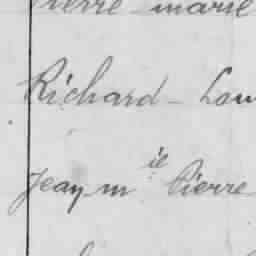 Pierre marie
Richard - Lou
Jean m ie Pierre